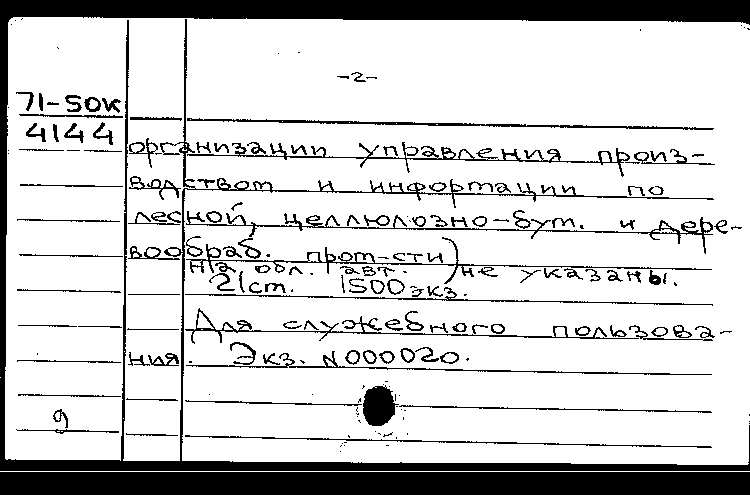 -2-
71-50К
4144
организации управления произ-
водством и информации по
лесной, целлюлозно-бум. и дере-
вообраб. пром-сти)
н/а обл. авт. не указаны.
21 ст. 1500 экз.
Для служебного пользова-
ния. Экз. N000020.
9